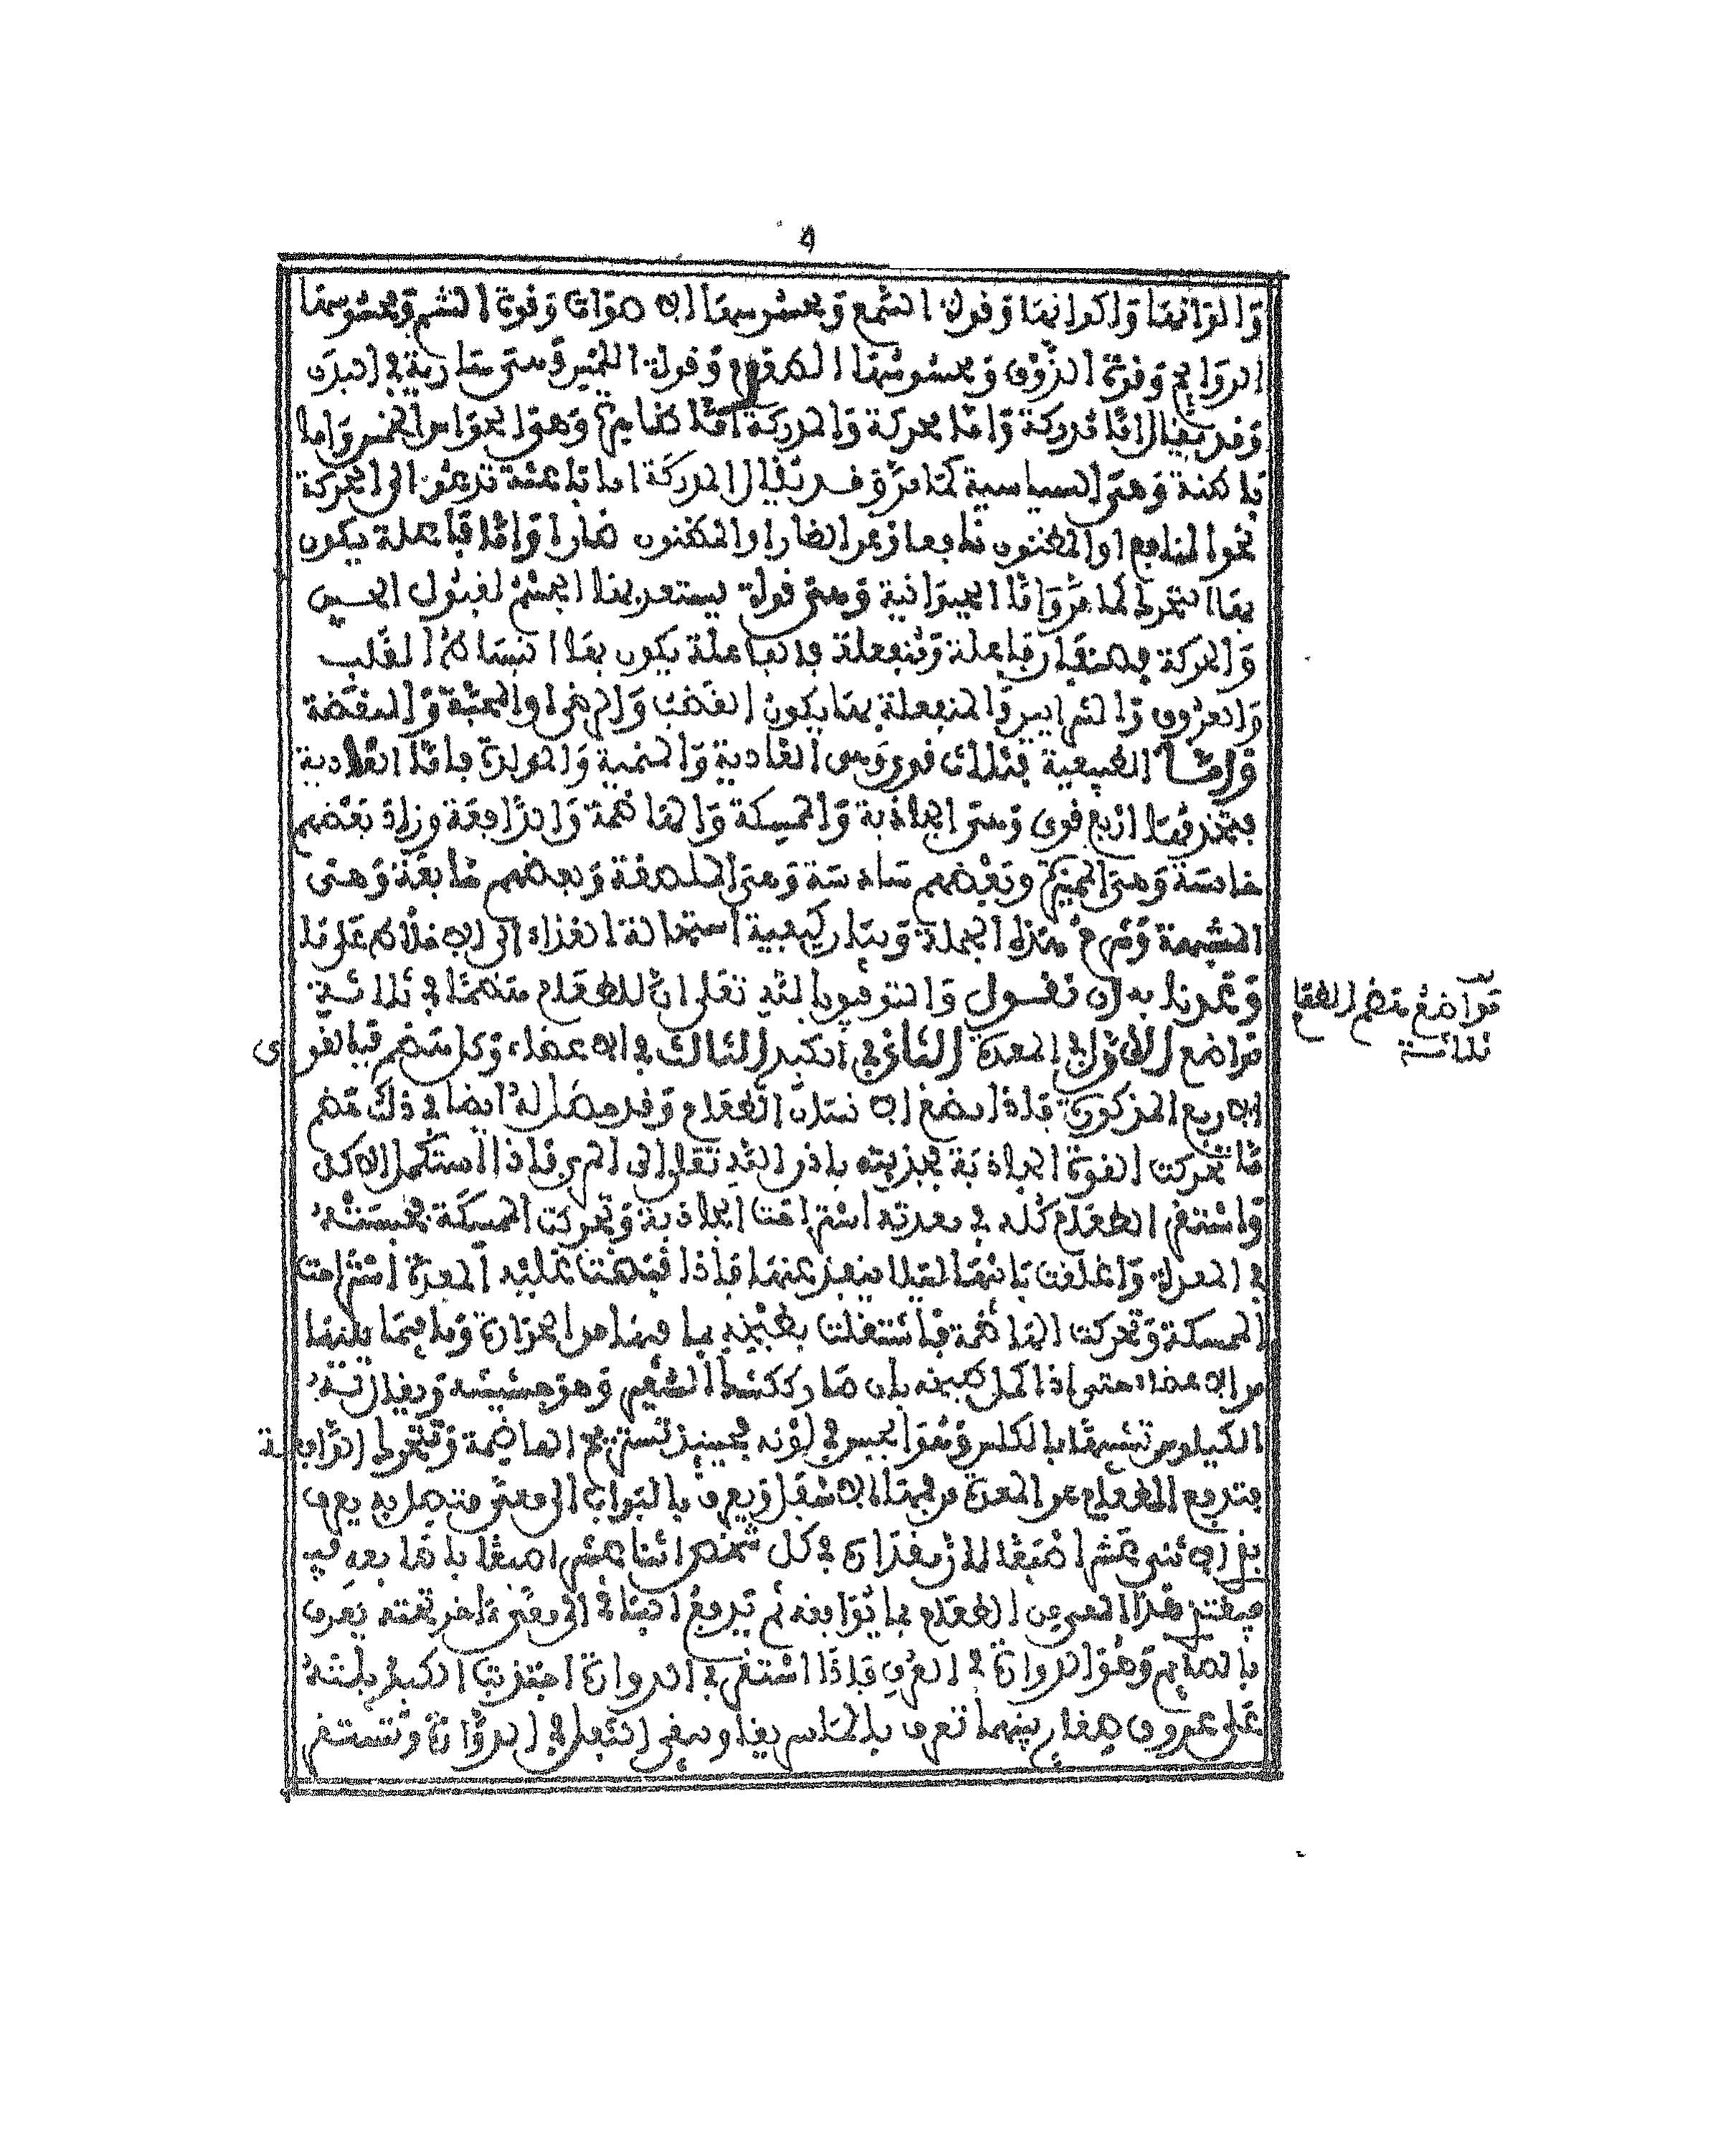 والوانها واكوانها وقوة السمع ومحسوسها الاصوات وقوة الشم ومحسوسها
الروايح وقوة الذوق ومحسوسها الطعوم وقوة اللمس وهى سارية في البدن
وقد يقال اما مدركة واما محركة والمدركة اما ظاهرة وهو الحواس الخمس واما
باطنة وهى السياسية كما مر وقد يقال المدركة اما باعثة تدعو الى الحركة
نحو النافع او المظنون نافعا وعن الضار او المظنون ضارا واما فاعلة يكون
بها التحرك كما مر واما الحيوانية وهى قوة يستعد بها الجسم لقبول الحس
والحركة وصنفان فاعلة ومنفعلة فالفاعلة يكون بها انبساط القلب
والعروق والشرايين والمنفعلة بها يكون الغضب والرضى والمحبة والمبغضة
واما الطبيعية فثلاث قوى وهى الغادية والمنمية والمولدة فاما الغادية
فيخدمها اربع قوى وهى الجاذبة والمسكة والهاضمة والدافعة وزاد بعضهم
خامسة وهى المميزة وبعضهم سادسة وهى الملصقة وبعضهم سابعة وهى
المشبهة وشرح هذه الجملة وبيان كيفية استحالة الغذاء الى الاخلاط على ما
وعدونا به ان نقول والتوفيق بالله تعلى ان للطعام منهضما في ثلاثة
مواضع الاول في المعدة الثاني في الكبد الثالث في الاعضاء وكل منهضم فيه القوى
الاربع المذكورة فاذا مضغ الانسان الطعام وقد حصل له ايضا في ذلك هضم
ما تحركت القوة الجاذبة فجذبته باذن الله تعلى الى المرى فاذا استكمل الاكل
واستقر الطعام كله في معدته استراحت الجاذبة وتحركت المسكة فحبسته
في المعدة واغلقت بابها ليلا ينفذ عنها فاذا قبضت عليه المعدة استراحت
المسكة وتحركت الهاضمة فاشتغلت بطبخه بما فيها من الحرارة وما فيما يليها
من الاعضاء حتى اذا كمل طبخه بان صار ككشك الشعير وهو حشيشه ويقال له
الكيلوس تشبيها بالكلس وهو الجبس في لونه فحينئذ تستريح الهاضمة وتتحرك الدافعة
فتدفع الطعام عن المعدة من فمها الاسفل ويعرف بالبواب الى معى متصل به يعرف
بذى الاثنى عشر اصبعا لان مقداره في كل شخص اثنا عشر اصبعا باصابعه
هذا المعى من الطعام ما يوافقه ثم تدفع الباقي الى معى ءاخر تحته يعرف
بالصايم وهو الدوارة في العرف فاذا استقر في الدوارة اجتذبت الكبد بلته
على عروق صغار بينهما تعرف بالماساريقا وبقى الثفل في الدوارة وتستفر
مواضع هضم الطعام
ثلاثة